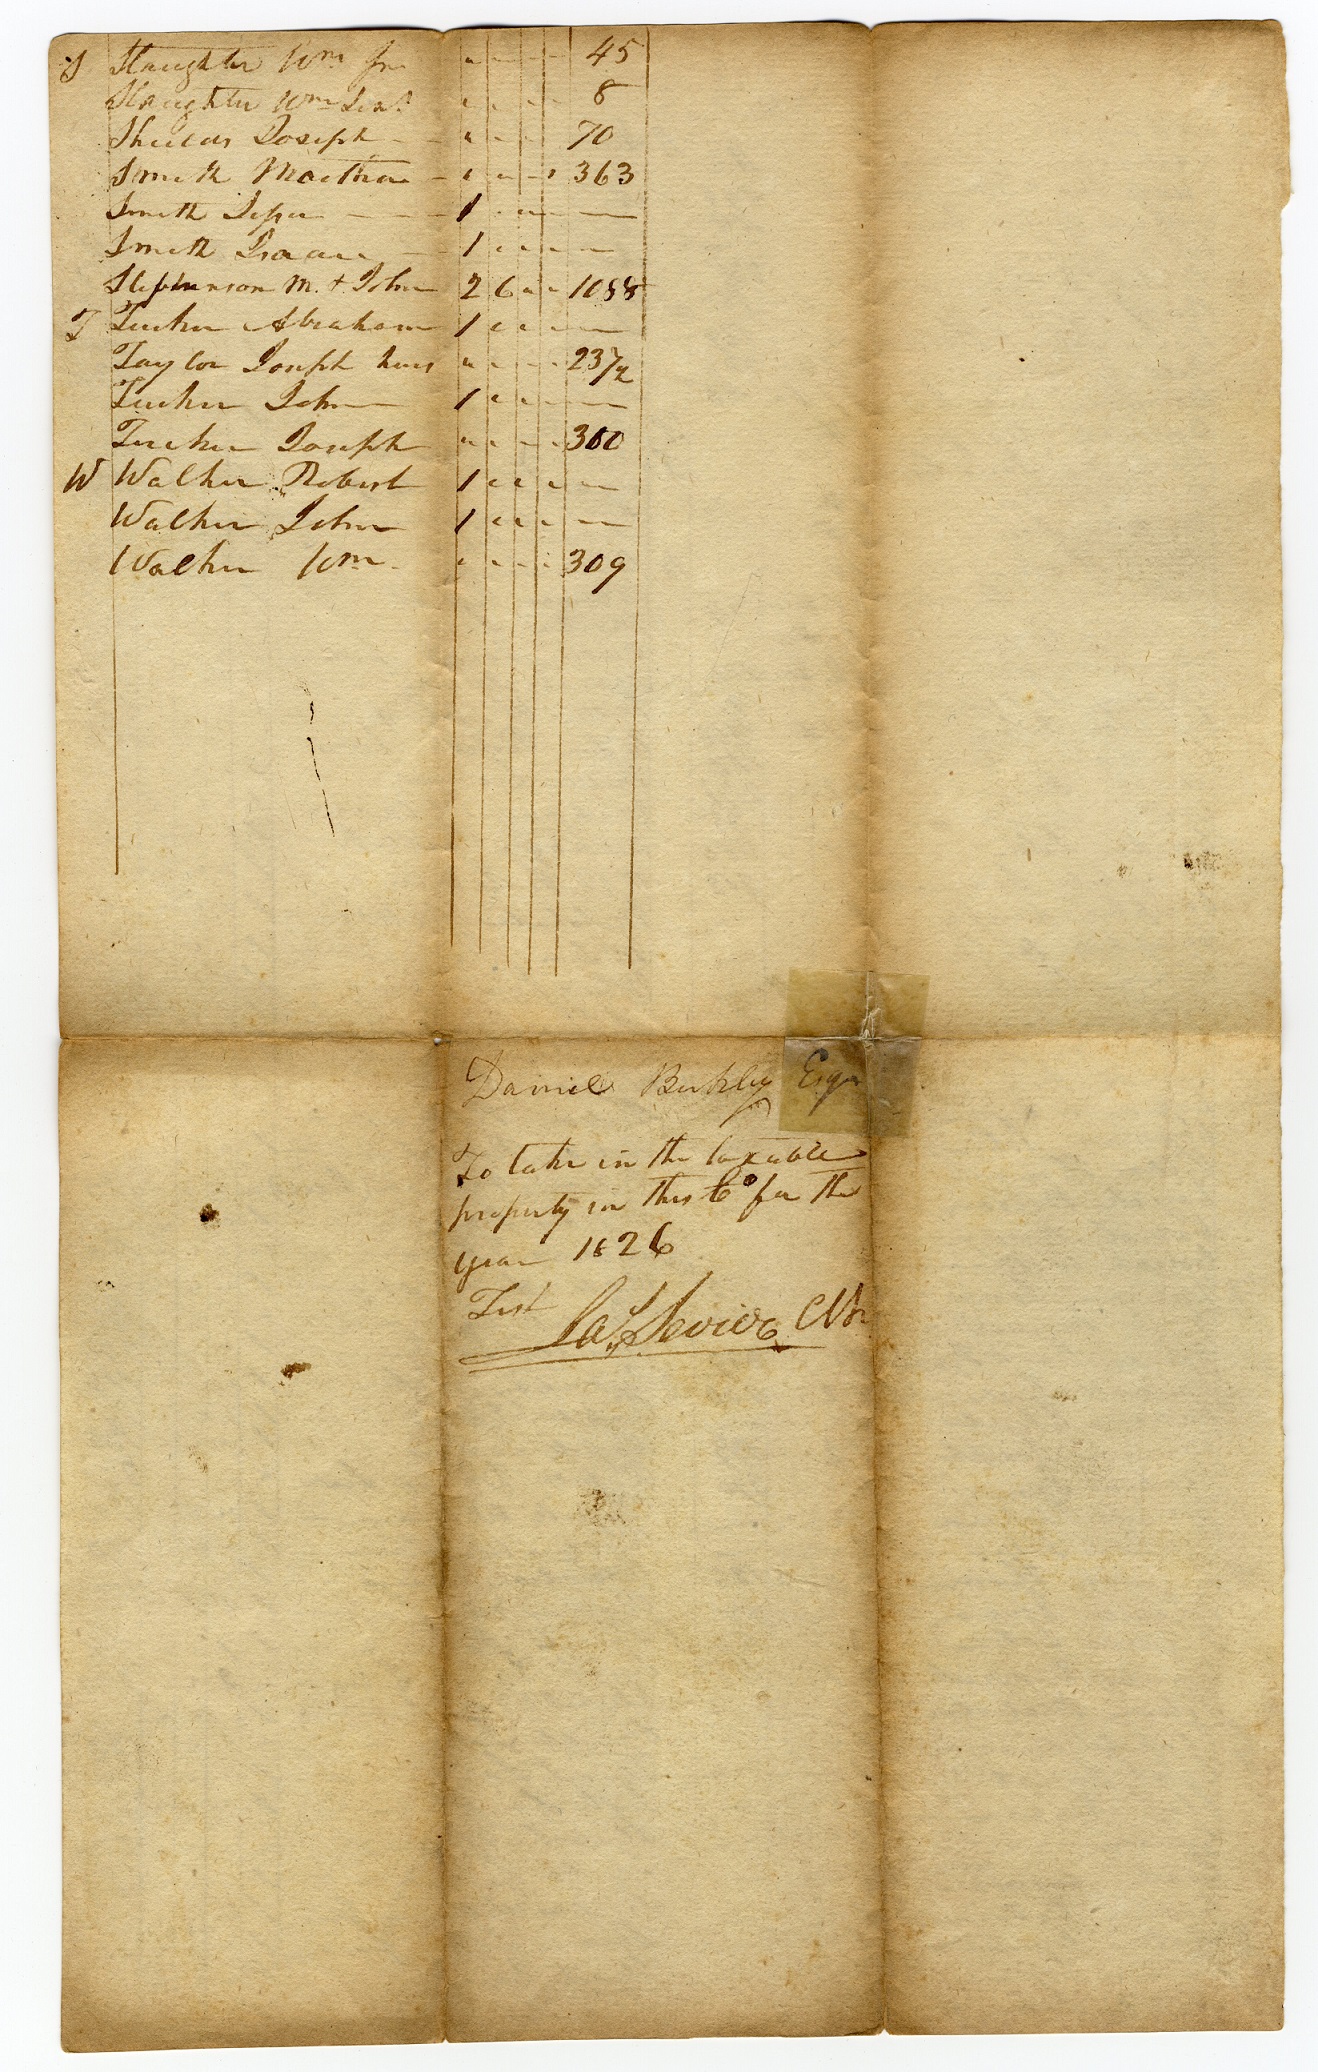 S Slaughter Wm Jnr " " - - 45
Slaughter Wm Senr " " - - 8
Shields Joseph - - " - - - 70
Smith - " " - " 363
Smith - - - 1 " " - -
Smith Isaac - 1 " " - -
Stephenson M. & John 2 6 " " 1088
T Tucker Abraham 1 " " " -
Taylor Joseph heirs " " - - 237½
Tucker John 1 " " - -
Tucker Joseph " " - - 300
W Walker Robert 1 " " " -
Walker John 1 " " " -
Walker Wm " " - - 309
Daniel Esqr
To take in the taxable
property in this Co for the
year 1826
Test Jas Sevier Clk